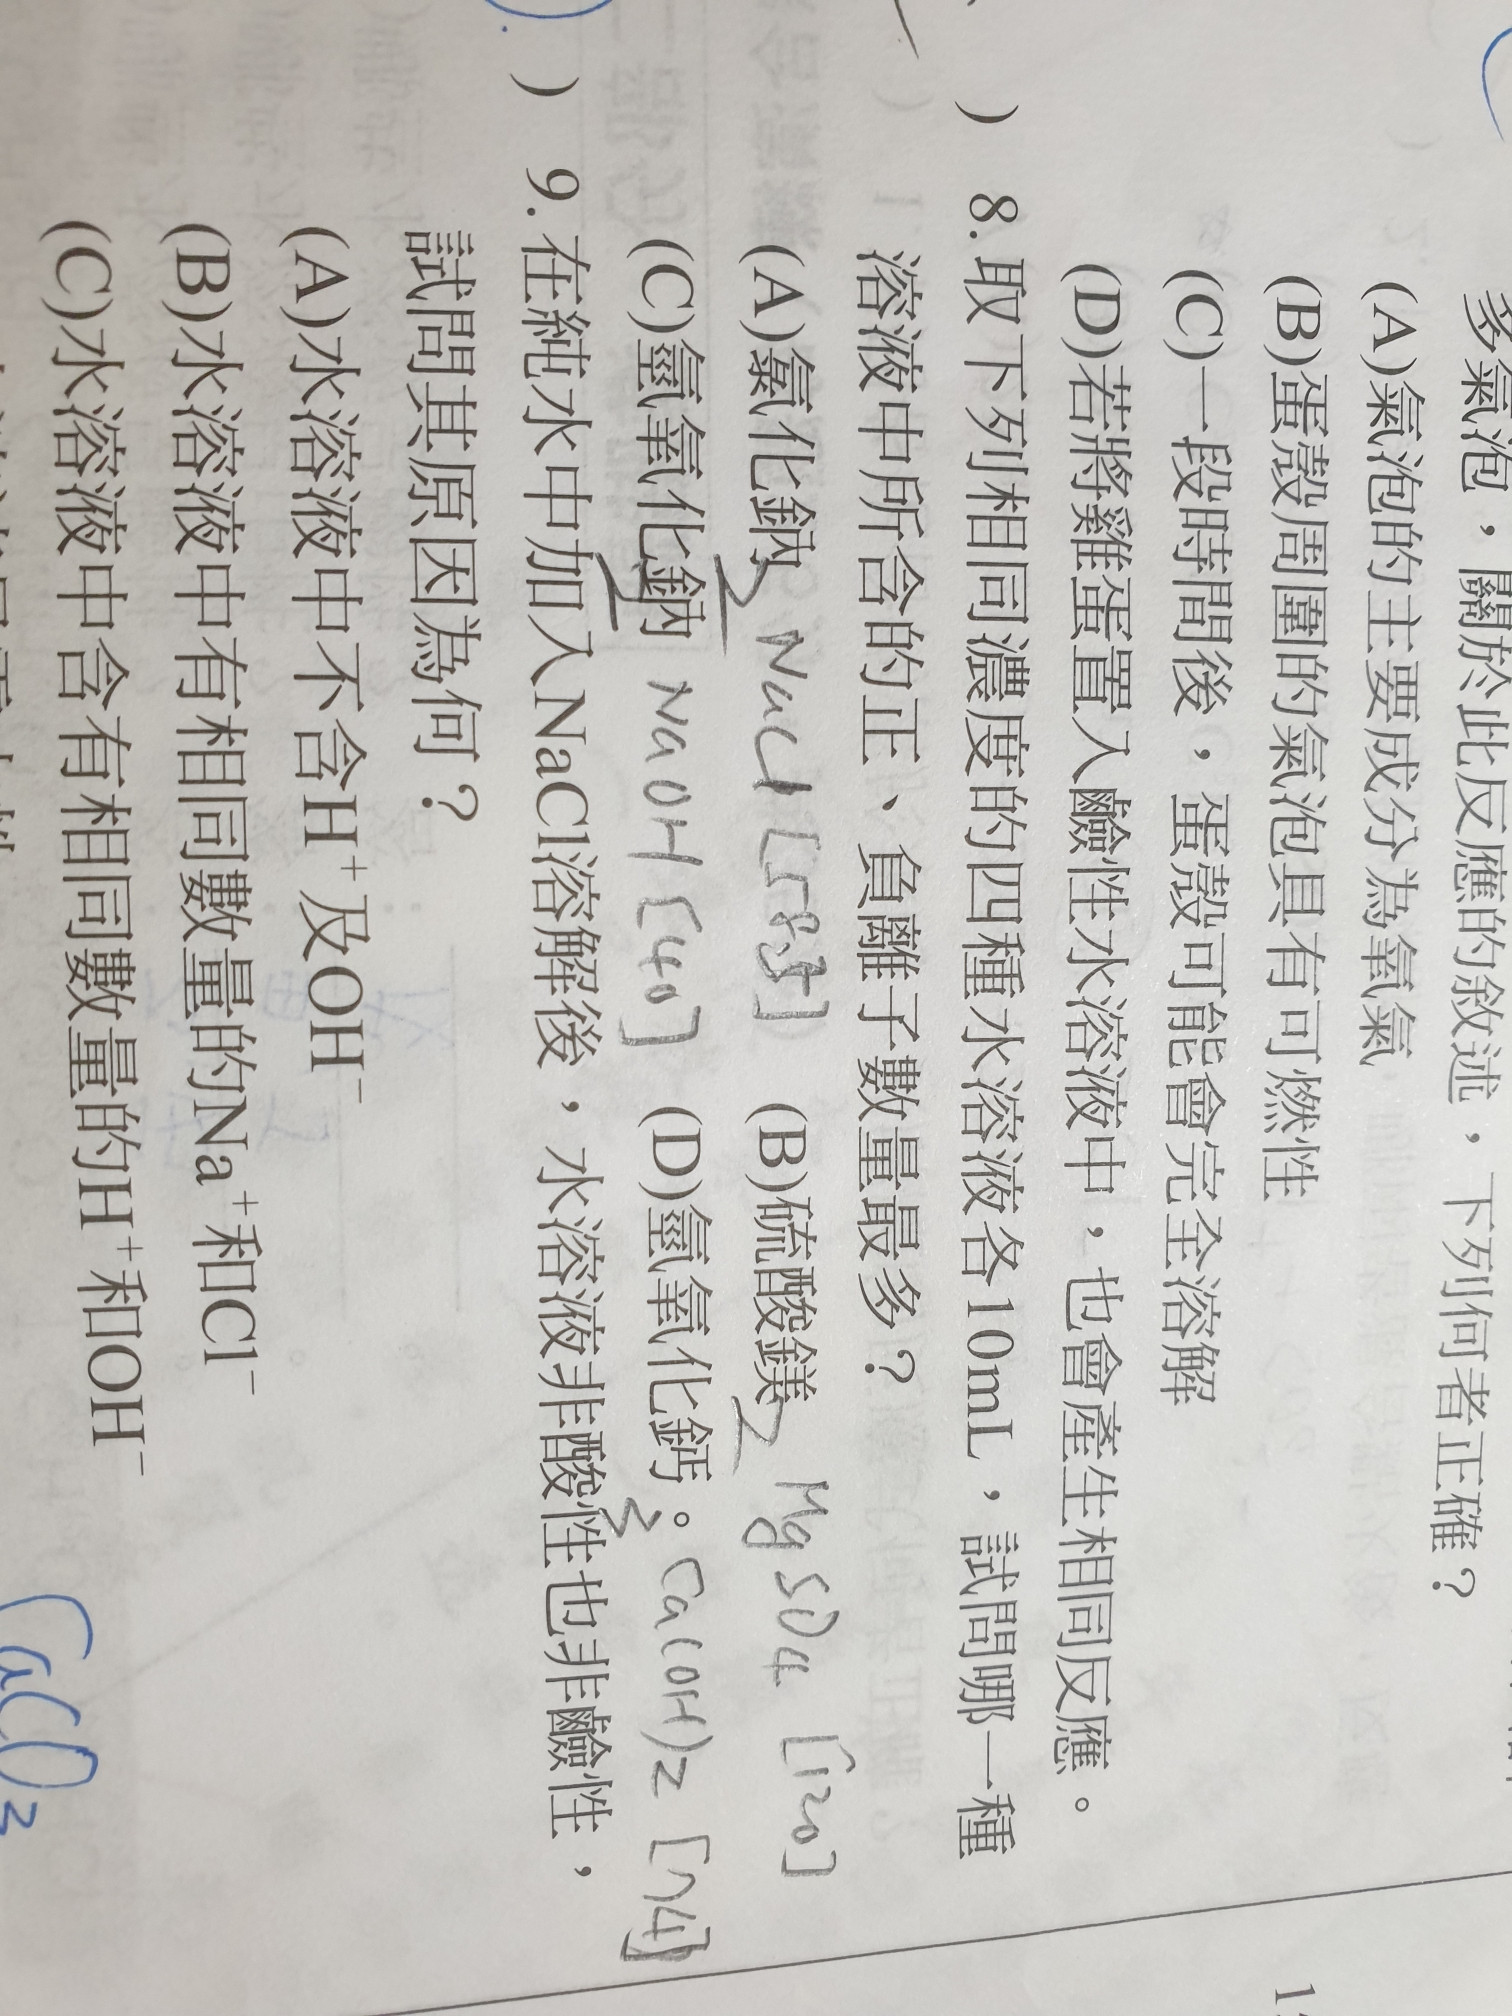 多氣泡，關於此反應的敘述，下列何者正確？
(A)氣泡的主要成分為氧氣
(B)蛋殼周圍的氣泡具有可燃性
(C)一段時間後，蛋殼可能會完全溶解
(D)若將雞蛋置入鹼性水溶液中，也會產生相同反應。
) 8.取下列相同濃度的四種水溶液各10mL，試問哪一種
溶液中所含的正、負離子數量最多？
(A)氯化鈉 2 NaCl [58.5] (B)硫酸鎂 2 MgSO4 [120]
(C)氫氧化鈉 2 NaOH [40] (D)氫氧化鈣。3 Ca(OH)2 [74]
) 9.在純水中加入NaCl溶解後，水溶液非酸性也非鹼性，
試問其原因為何？
(A)水溶液中不含H⁺及OH⁻
(B)水溶液中有相同數量的Na⁺和Cl⁻
(C)水溶液中含有相同數量的H⁺和OH⁻
CaCl2